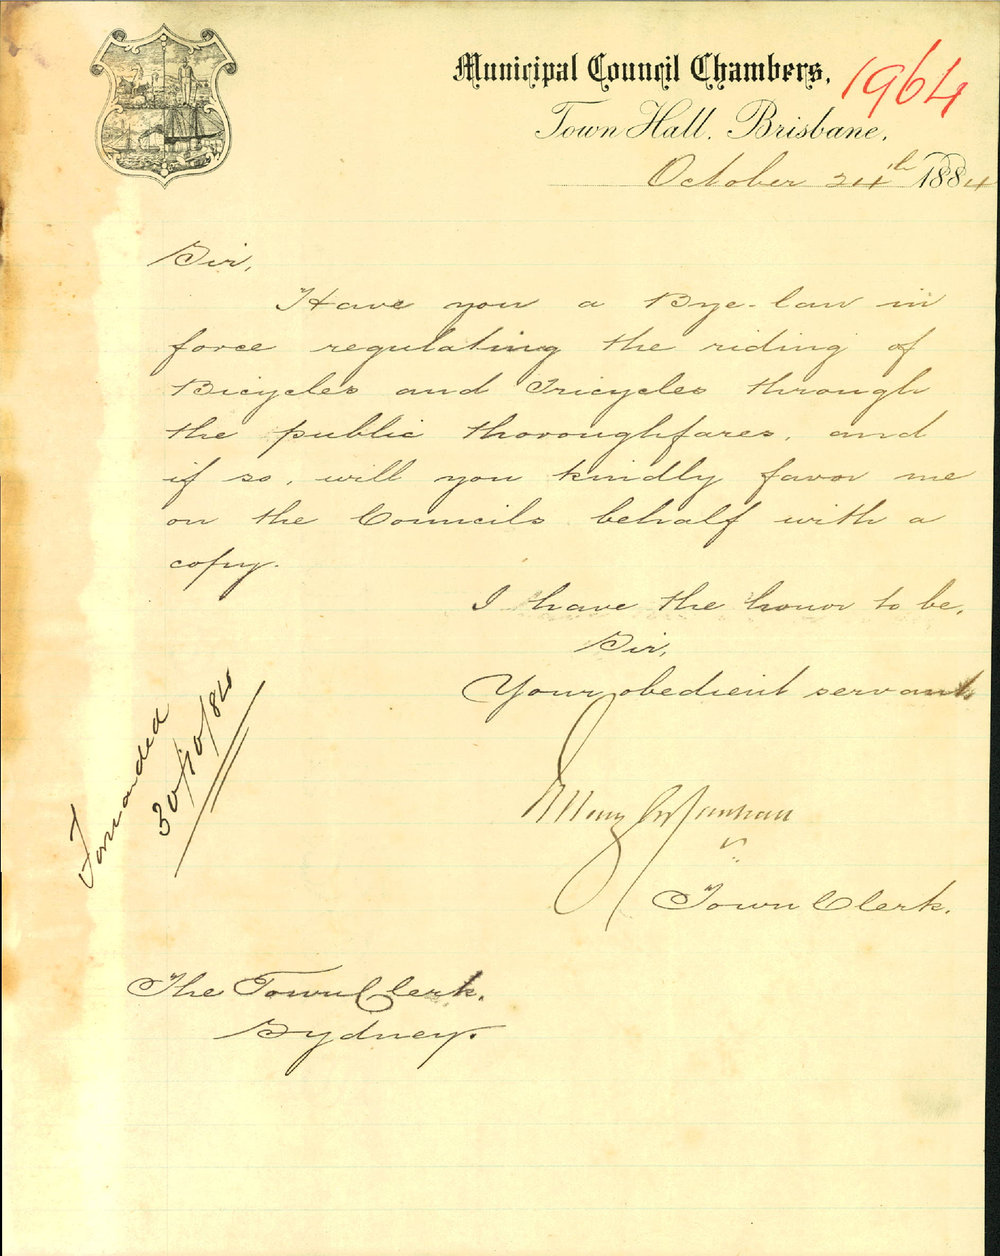 Municipal Council Chambers,
1964
Town Hall, Brisbane,
October 24th 1884
Sir,
Have you a Bye-law in
force regulating the riding of
Bicycles and Tricycles through
the public thoroughfares, and
if so, will you kindly favor me
on the Councils behalf with a
copy.
I have the honor to be,
Sir,
Your obedient servant
Town Clerk.
Forwarded
30/10/84
The Town Clerk.
Sydney.